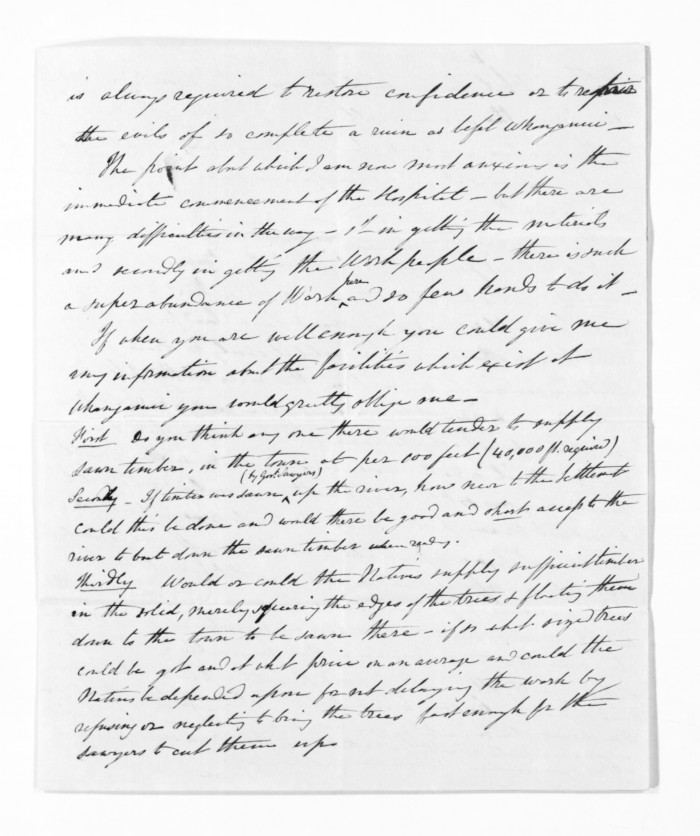 is always required to restore confidence or to repair
the evils of so complete a ruin as befel Whanganui –
The point about which I am now most anxious is the
immediate commencement of the Hospital – but there are
many difficulties in the way – 1st in getting the materials
and secondly in getting the Work people – there is such
a superabundance of Work here and so few hands to do it –
If when you are well enough you could give me
any information about the facilities which exist at
Whanganui you would greatly oblige me –
First Do you think any one there would tender to supply
sawn timber, in the town at per 100 feet (40,000 ft. required)
Secondly – If timber was sawn (by Govt. Sawyers) up the river, how near to the Settlement
could this be done and would there be good and short access to the
river to boat down the sawn timber when ready.
Thirdly Would or could the Natives supply sufficient timber
in the solid, merely squaring the edges of the trees & floating them
down to the town to be sawn there – if so what sized trees
could be got and at what price on an average and could the
Natives be depended upon for not delaying the work by
refusing or neglecting to bring the trees fast enough for the
sawyers to cut them up